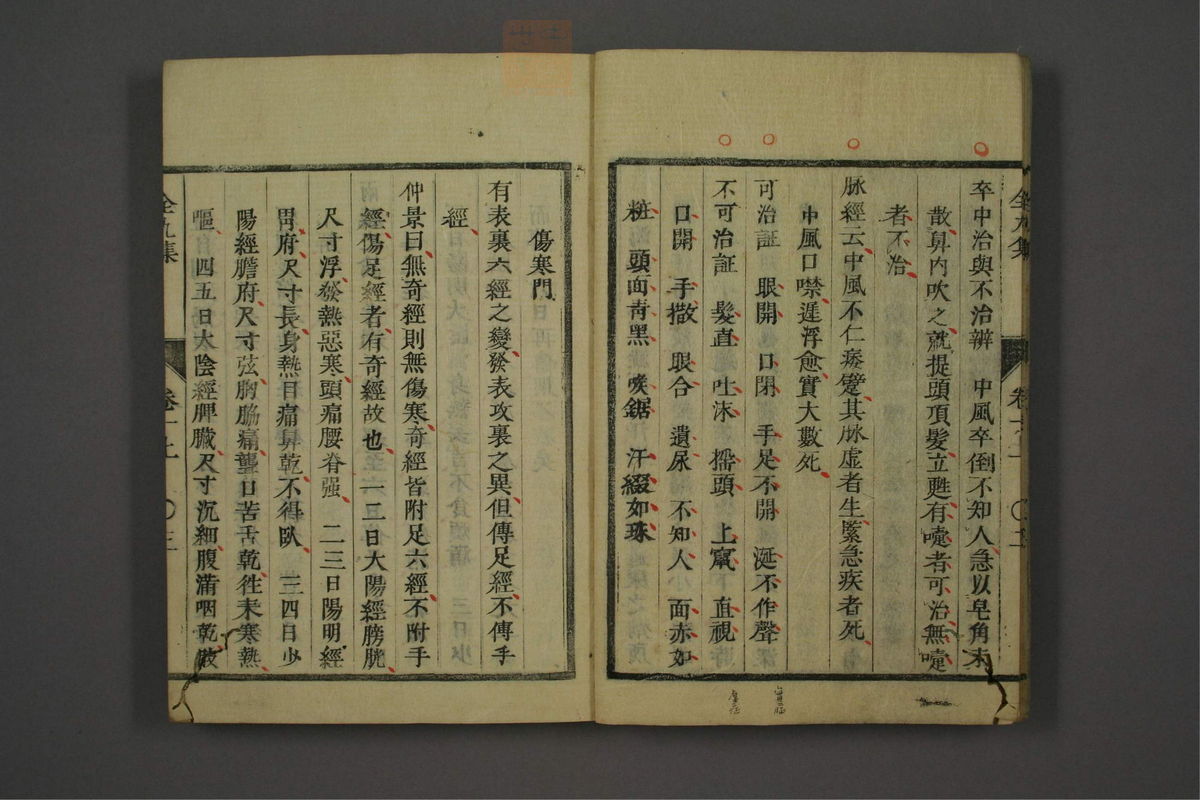 卒中治與不治辨 中風卒倒不知人急以皂角末
散鼻内吹之就提頭頂髮立甦有嚏者可治無嚏
者不治
脉經云中風不仁痿躄其脉虛者生緊急疾者死
中風口噤遲浮愈實大數死
可治証 眼開 口閉 手足不開 涎不作聲
不可治証 髮直 吐沫 搖頭 上竄 直視
口開 手撒 眼合 遺尿 不知人 面赤如
粧 頭面青黑 痰鋸 汗綴如珠
傷寒門
有表裏六經之變發表攻裏之異但傳足經不傳手
經
仲景曰無奇經則無傷寒奇經皆附足六經不附手
經傷足經者有奇經故也 一二日大陽經膀胱
尺寸浮發熱惡寒頭痛腰脊强 二三日陽明經
胃府尺寸長身熱目痛鼻乾不得臥 三四日少
陽經膽府尺寸弦胸脇痛聾口苦舌乾徃来寒熱
嘔 四五日太陰經脾臓尺寸沉細腹滿咽乾
全九集
卷一上
〇三
全九集
卷一上